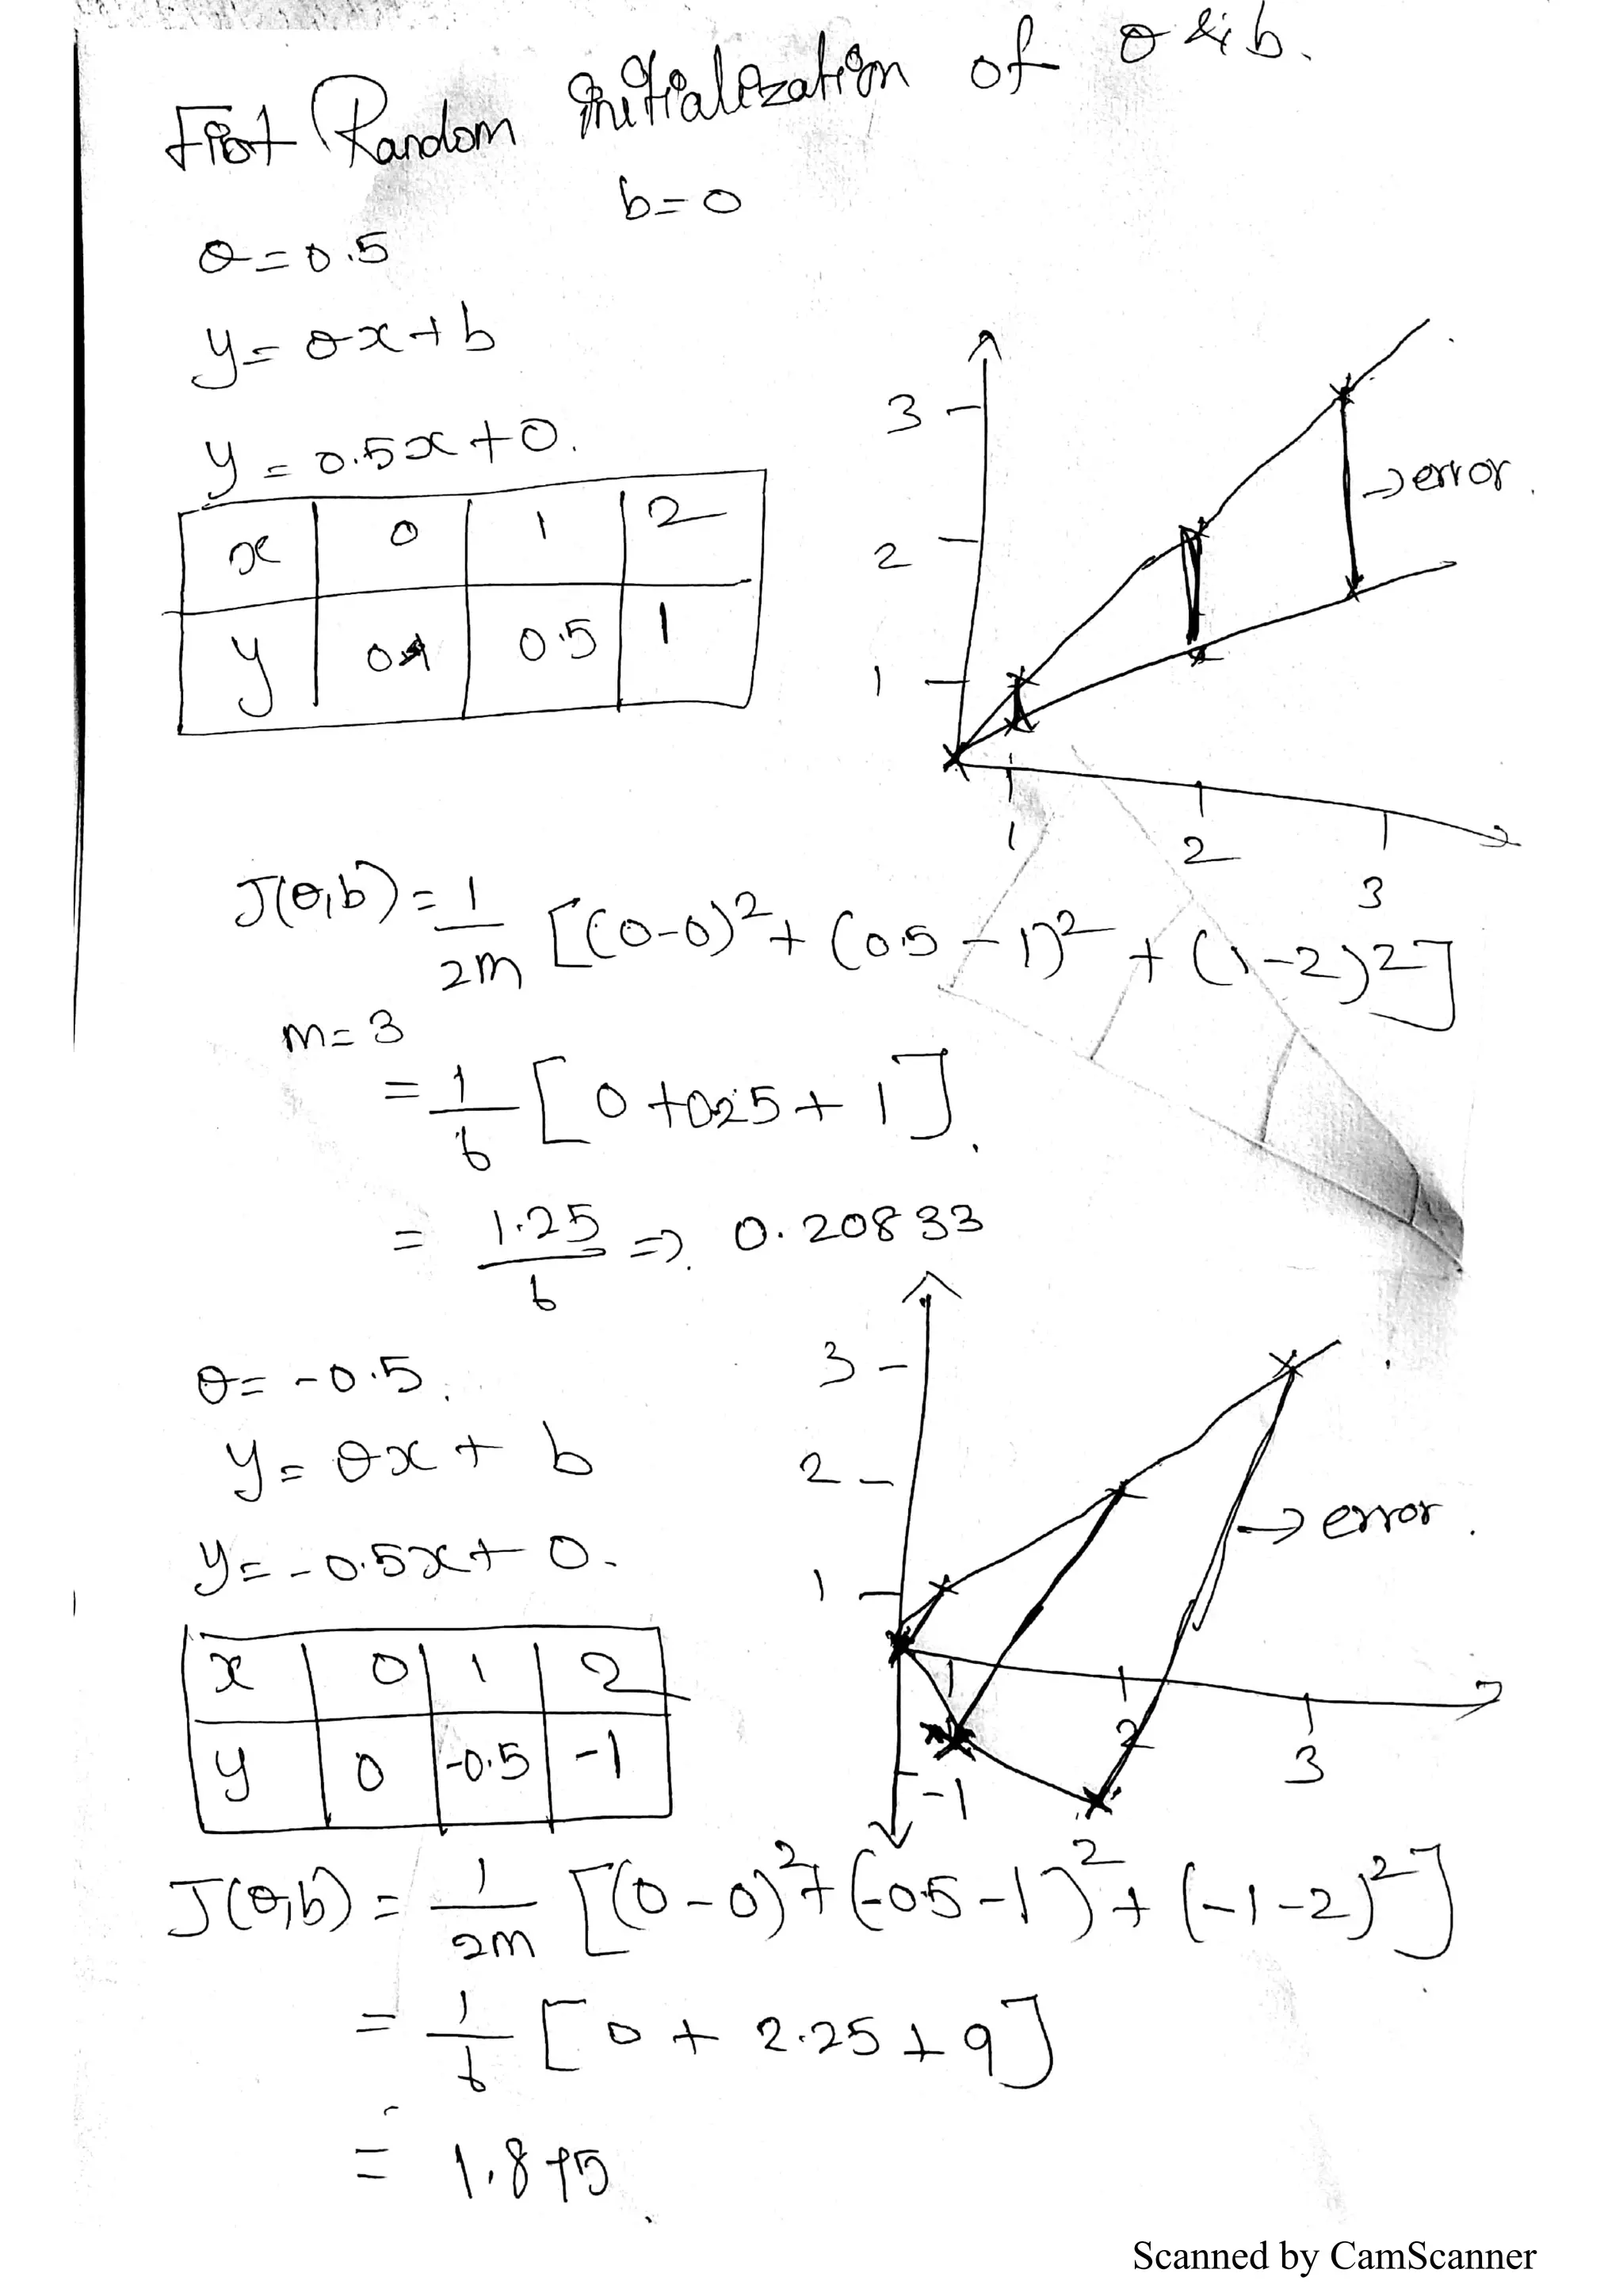 First Random initialization of θ & b.
θ = 0.5 b = 0
y = θx + b
y = 0.5x + 0.
x 0 1 2
y 0 0.5 1
3
2
1
→ error.
1 2 3
J(θ,b) = 1/2m [(0-0)² + (0.5-1)² + (1-2)²]
m = 3
= 1/6 [0 + 0.25 + 1].
= 1.25/6 ⇒ 0.20833
θ = -0.5.
y = θx + b
y = -0.5x + 0.
x 0 1 2
y 0 -0.5 -1
3
2
1
→ error.
1 2 3
-1
J(θ,b) = 1/2m [(0-0)² + (-0.5-1)² + (-1-2)²]
= 1/6 [0 + 2.25 + 9]
= 1.875
Scanned by CamScanner